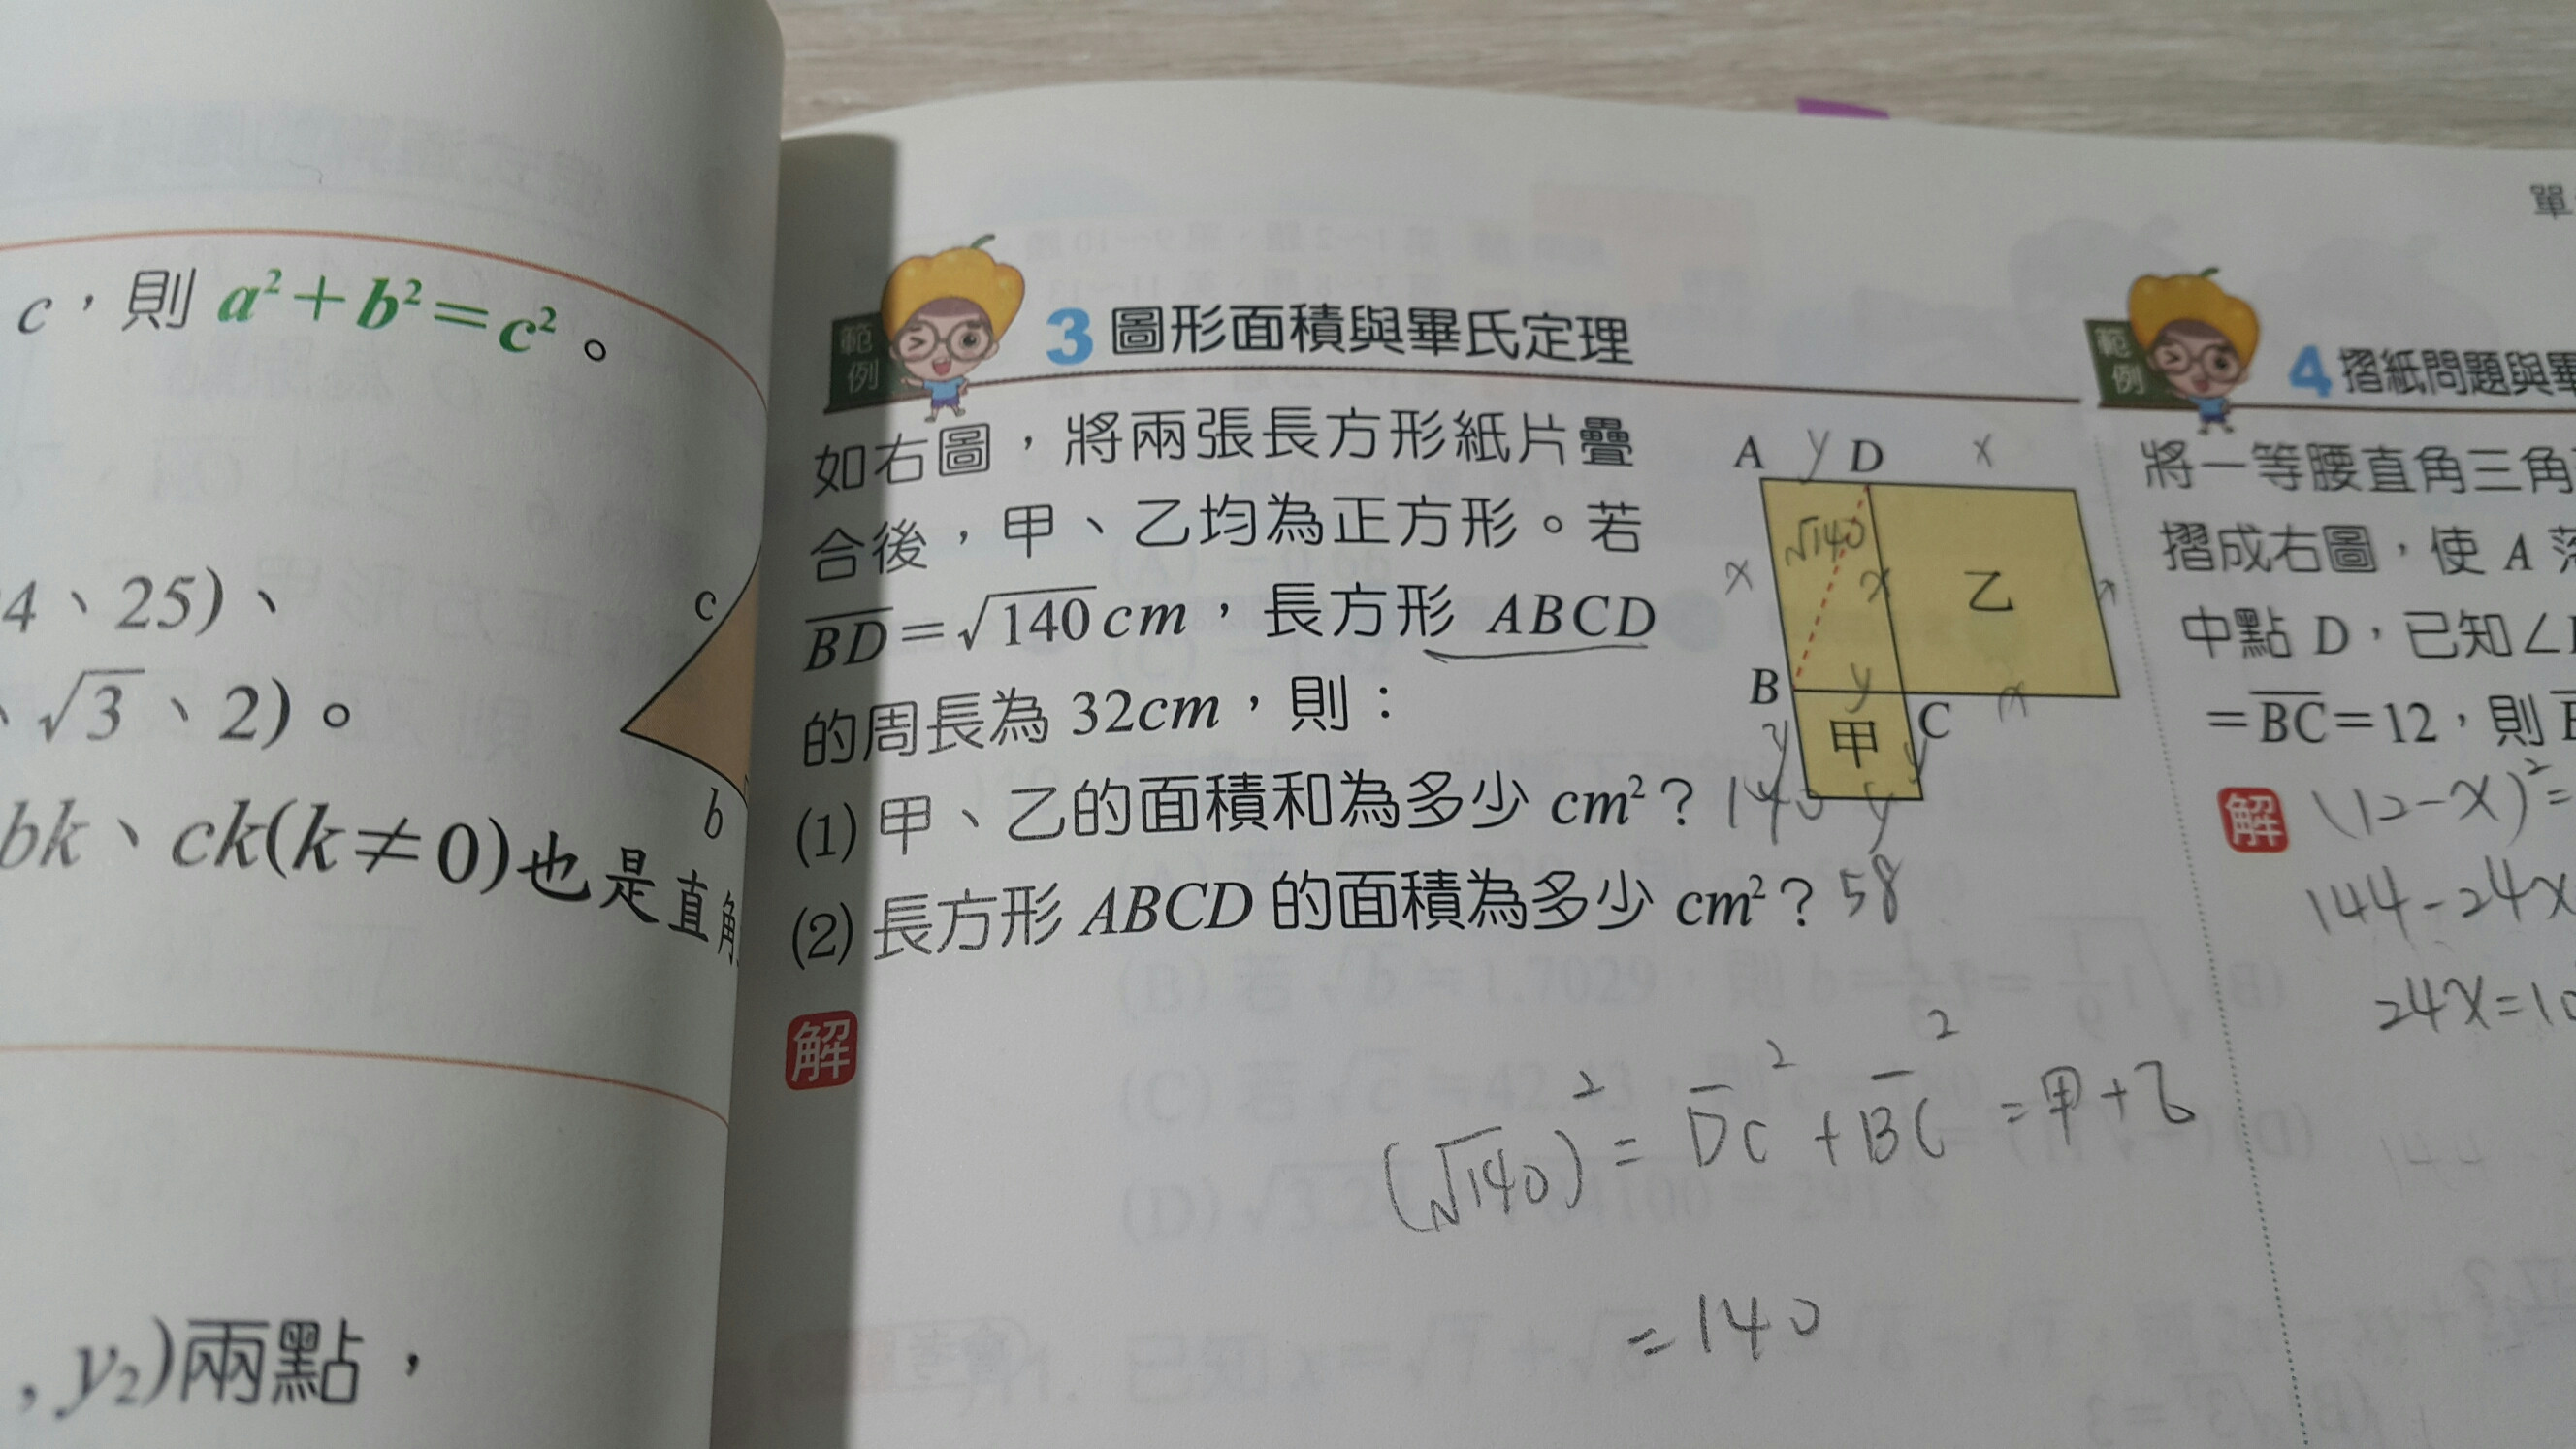 c，則 a²+b²=c²。
4、25)、
、√3、2)。
c
b
bk、ck(k≠0)也是直角
, y₂)兩點，
單
範例 3 圖形面積與畢氏定理
如右圖，將兩張長方形紙片疊
合後，甲、乙均為正方形。若
BD=√140 cm，長方形 ABCD
的周長為 32cm，則：
(1) 甲、乙的面積和為多少 cm²？140
(2) 長方形 ABCD 的面積為多少 cm²？58
A y D x
√140
x x 乙
B y x
甲 C
y y
y
解
(√140)² = DC² + BC² = 甲+乙
= 140
範例 4 摺紙問題與畢
將一等腰直角三角
摺成右圖，使 A 落
中點 D，已知∠
=BC=12，則
解 (12-x)²=
144-24x
24x=10